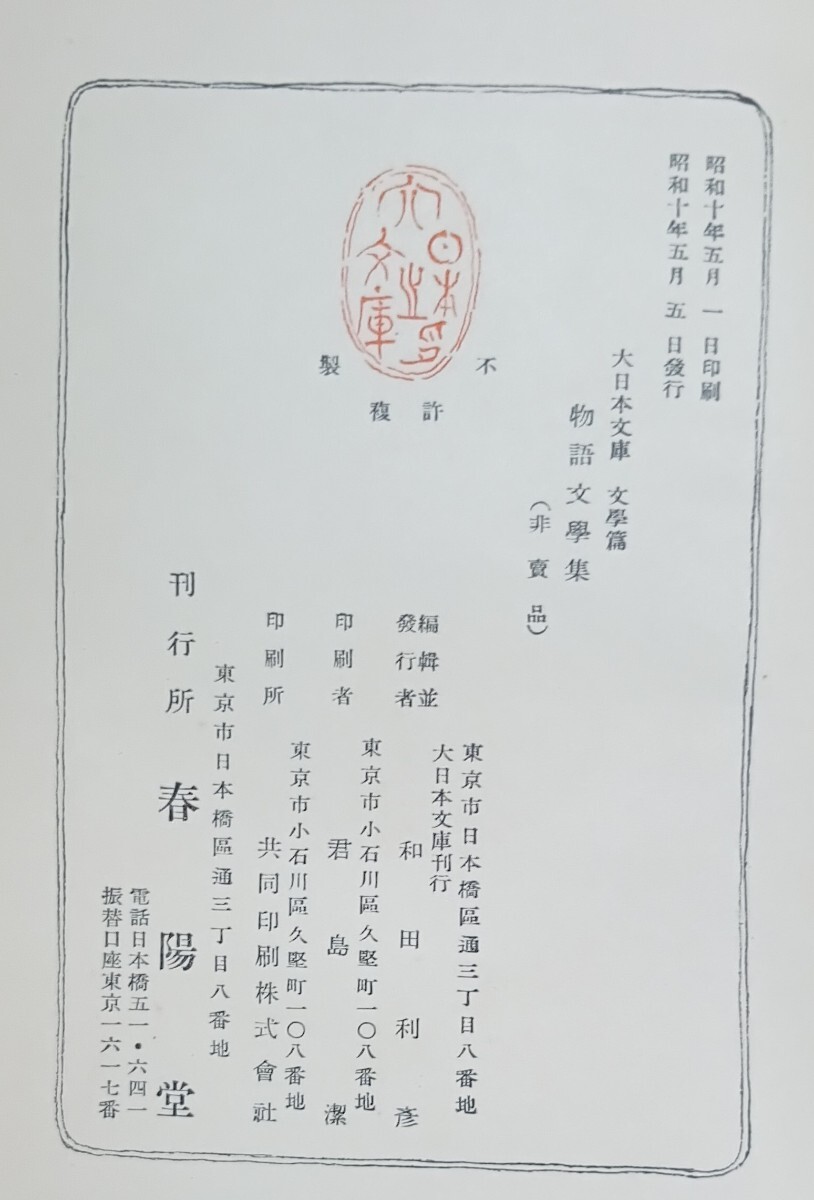 昭和十年五月 一 日印刷
昭和十年五月 五 日發行
大日本文庫 文學篇
物語文學集
(非賣品)
不許複製
大日本之文庫印
編輯並發行者
東京市日本橋區通三丁目八番地
大日本文庫刊行
和田利彦
印刷者
東京市小石川區久堅町一〇八番地
君島潔
印刷所
東京市小石川區久堅町一〇八番地
共同印刷株式會社
東京市日本橋區通三丁目八番地
刊行所 春陽堂
電話日本橋五一・六四一
振替口座東京一六一七番